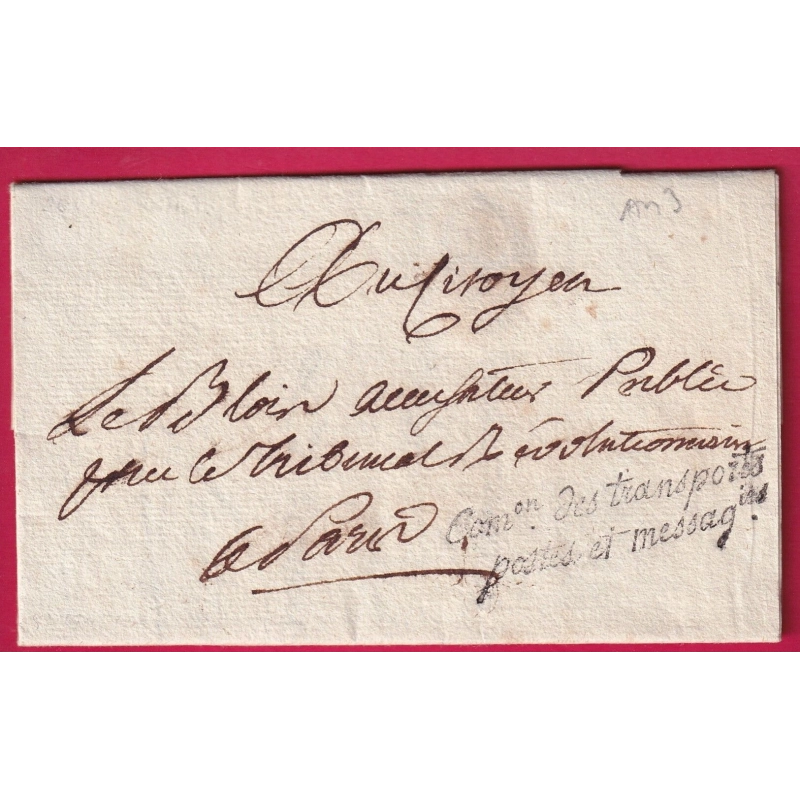 an 3
Au Citoyen
Le Blois accusateur Public
près le tribunal Révolutionnaire
a Paris
Com.on des transports
postes et messag.ies